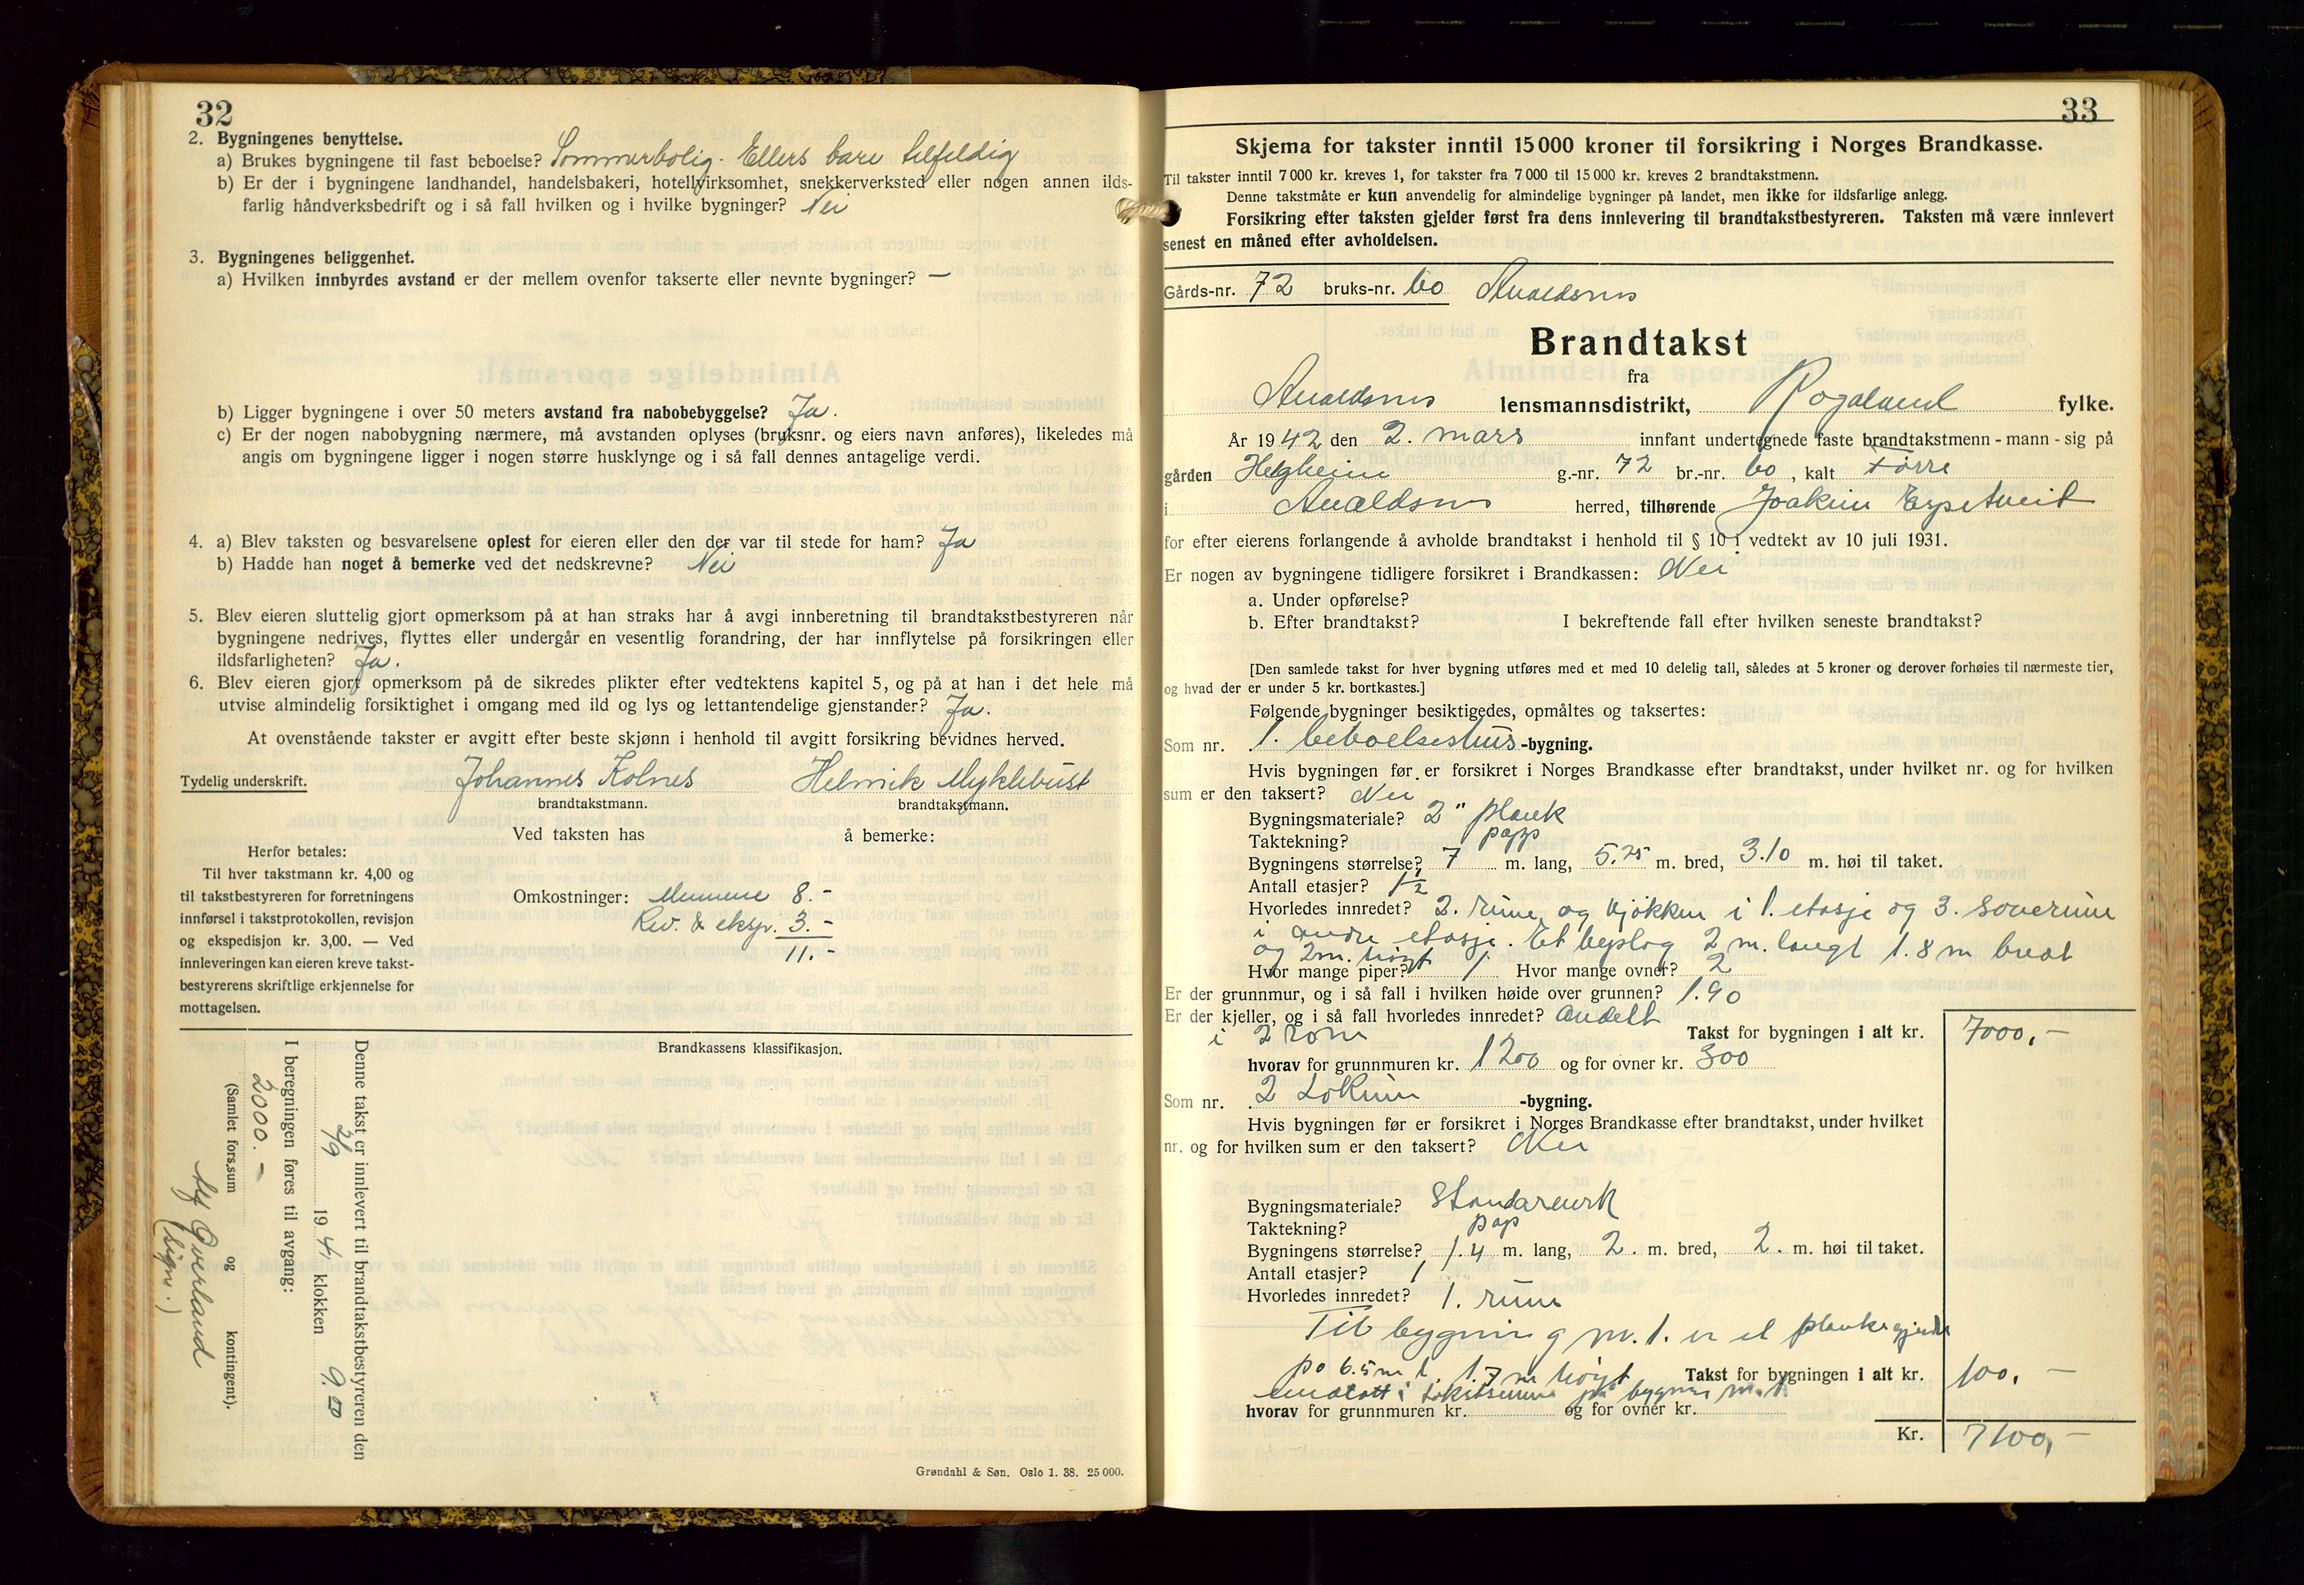 32
2. Bygningenes benyttelse.
a) Brukes bygningene til fast beboelse? Sommerbolig. Ellers bare tilfeldig
b) Er der i bygningene landhandel, handelsbakeri, hotellvirksomhet, snekkerverksted eller nogen annen ilds-
farlig håndverksbedrift og i så fall hvilken og i hvilke bygninger? Nei
3. Bygningenes beliggenhet.
a) Hvilken innbyrdes avstand er der mellem ovenfor takserte eller nevnte bygninger? —
b) Ligger bygningene i over 50 meters avstand fra nabobebyggelse? Ja.
c) Er der nogen nabobygning nærmere, må avstanden oplyses (bruksnr. og eiers navn anføres), likeledes må
angis om bygningene ligger i nogen større husklynge og i så fall dennes antagelige verdi.
4. a) Blev taksten og besvarelsene oplest for eieren eller den der var til stede for ham? Ja
b) Hadde han noget å bemerke ved det nedskrevne? Nei
5. Blev eieren sluttelig gjort opmerksom på at han straks har å avgi innberetning til brandtakstbestyreren når
bygningene nedrives, flyttes eller undergår en vesentlig forandring, der har innflytelse på forsikringen eller
ildsfarligheten? Ja.
6. Blev eieren gjort opmerksom på de sikredes plikter efter vedtektens kapitel 5, og på at han i det hele må
utvise almindelig forsiktighet i omgang med ild og lys og lettantendelige gjenstander? Ja.
At ovenstående takster er avgitt efter beste skjønn i henhold til avgitt forsikring bevidnes herved.
Tydelig underskrift. Johannes Kolnes Helmik Myklebust
brandtakstmann. brandtakstmann.
Ved taksten has å bemerke:
Herfor betales:
Til hver takstmann kr. 4,00 og
til takstbestyreren for forretningens
innførsel i takstprotokollen, revisjon
og ekspedisjon kr. 3,00. — Ved
innleveringen kan eieren kreve takst-
bestyrerens skriftlige erkjennelse for
mottagelsen.
Omkostninger: Mennene 8.-
Rev. & eksp. 3.-
11.-
Brandkassens klassifikasjon.
Denne takst er innlevert til brandtakstbestyreren den
2/9 194 klokken 9.00
I beregningen føres til avgang:
2000.-
(Samlet fors.sum og kontingent).
Alf Overland
(sign.)
Grøndahl & Søn. Oslo 1. 38. 25 000.
33
Skjema for takster inntil 15 000 kroner til forsikring i Norges Brandkasse.
Til takster inntil 7 000 kr. kreves 1, for takster fra 7 000 til 15 000 kr. kreves 2 brandtakstmenn.
Denne takstmåte er kun anvendelig for almindelige bygninger på landet, men ikke for ildsfarlige anlegg.
Forsikring efter taksten gjelder først fra dens innlevering til brandtakstbestyreren. Taksten må være innlevert
senest en måned efter avholdelsen.
Gårds-nr. 72 bruks-nr. 60 Avaldsnes
Brandtakst
fra
Avaldsnes lensmannsdistrikt, Rogaland fylke.
År 1942 den 2. mars innfant undertegnede faste brandtakstmenn - mann - sig på
gården Helgheim g.-nr. 72 br.-nr. 60, kalt Førre
i Avaldsnes herred, tilhørende Joakim Espetveit
for efter eierens forlangende å avholde brandtakst i henhold til § 10 i vedtekt av 10 juli 1931.
Er nogen av bygningene tidligere forsikret i Brandkassen: Nei
a. Under opførelse?
b. Efter brandtakst? I bekreftende fall efter hvilken seneste brandtakst?
[Den samlede takst for hver bygning utføres med et med 10 delelig tall, således at 5 kroner og derover forhøies til nærmeste tier,
og hvad der er under 5 kr. bortkastes.]
Følgende bygninger besiktigedes, opmåltes og taksertes:
Som nr. 1. beboelseshus-bygning.
Hvis bygningen før er forsikret i Norges Brandkasse efter brandtakst, under hvilket nr. og for hvilken
sum er den taksert? Nei
Bygningsmateriale? 2" plank
Taktekning? papp
Bygningens størrelse? 7 m. lang, 5.25 m. bred, 3.10 m. høi til taket.
Antall etasjer? 1½
Hvorledes innredet? 2. rum og kjøkken i 1. etasje og 3. soverum
i andre etasje. Et beslag 2 m. langt 1.8 m bredt
og 2 m. høgt
Hvor mange piper? 1 Hvor mange ovner? 2
Er der grunnmur, og i så fall i hvilken høide over grunnen? 1.90
Er der kjeller, og i så fall hvorledes innredet? Andelt
i 2 rom Takst for bygningen i alt kr. 7000,-
hvorav for grunnmuren kr. 1200 og for ovner kr. 300
Som nr. 2 Lokum -bygning.
Hvis bygningen før er forsikret i Norges Brandkasse efter brandtakst, under hvilket
nr. og for hvilken sum er den taksert? Nei
Bygningsmateriale? Standarverk
Taktekning? pap
Bygningens størrelse? 1.4 m. lang, 2. m. bred, 2. m. høi til taket.
Antall etasjer? 1
Hvorledes innredet? 1. rum
Til bygning nr. 1. er et plankegjerde
po 6.5 m l. 1.7 m høgt Takst for bygningen i alt kr. 100,-
i på bygning nr. 1.
hvorav for grunnmuren kr. og for ovner kr.
Kr. 7100,-